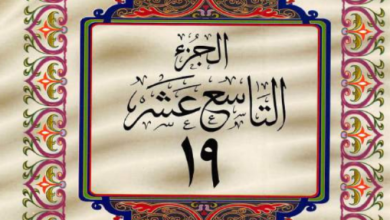 الجزء
التاسع عشر
١٩